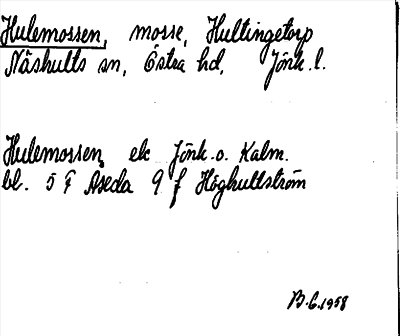 Hulemossen, mosse, Hultingetorp
Näshults sn, Östra hd, Jönk. l.
Hulemossen, ek Jönk. o. Kalm.
bl. 5 F Åseda 9 f Höghultström
B.G. 1958